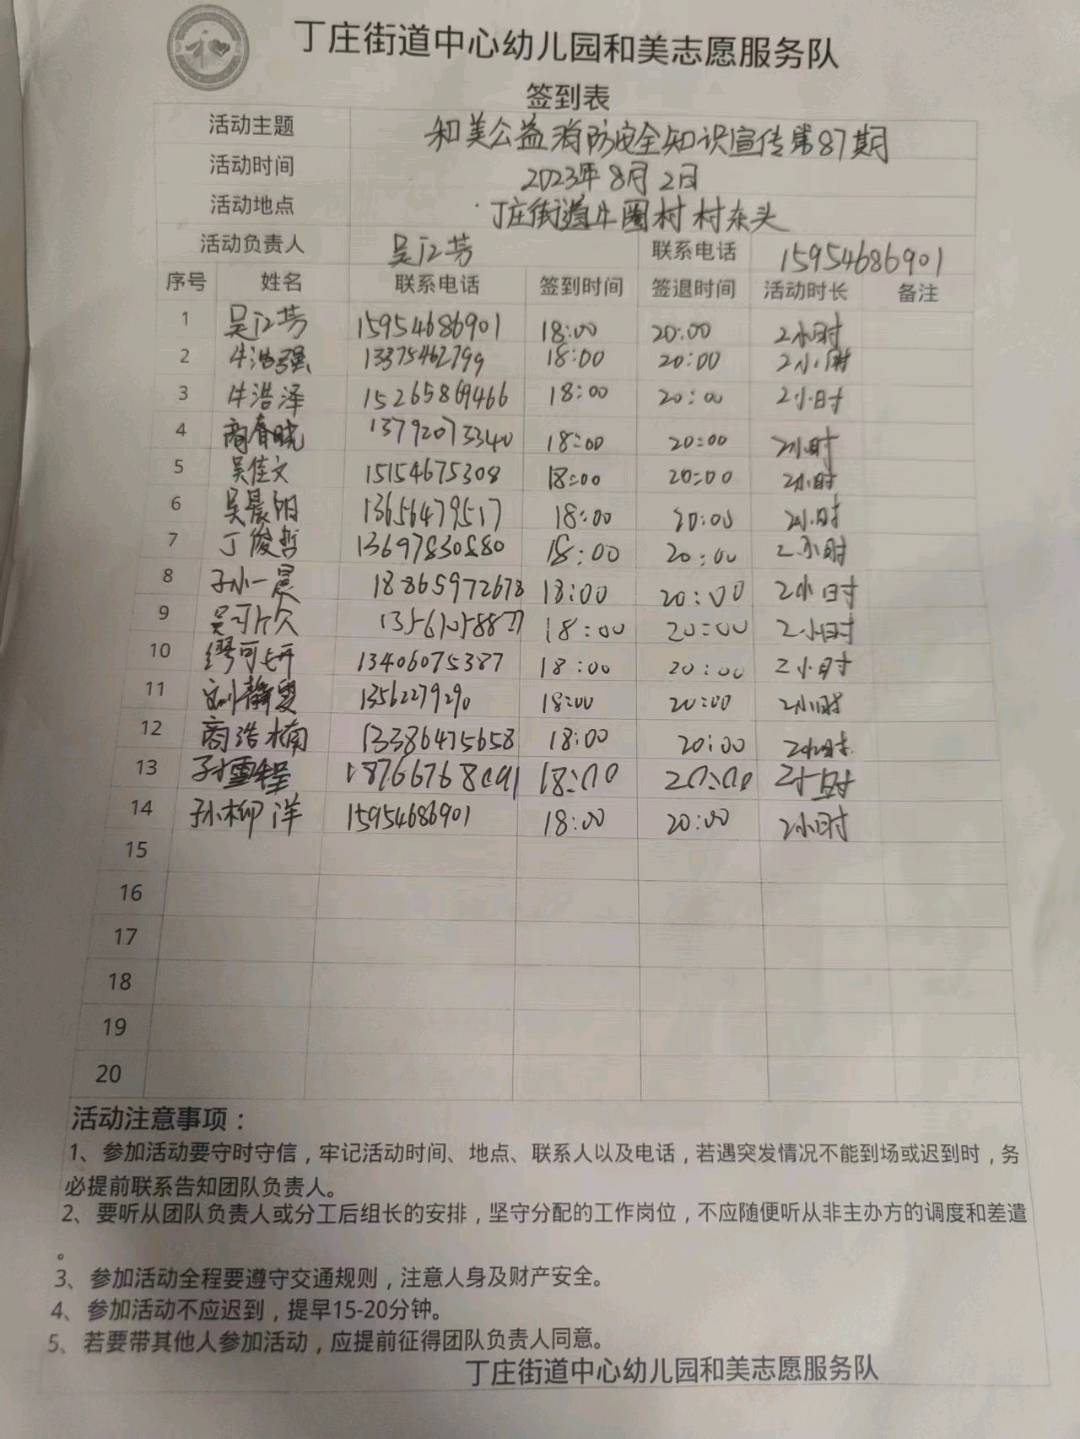 丁庄街道中心幼儿园和美志愿服务队
签到表
活动主题 和美公益消防安全知识宣传第87期
活动时间 2023年8月2日
活动地点 丁庄街道牛圈村村东头
活动负责人 吴江芳 联系电话 15954686901
序号 姓名 联系电话 签到时间 签退时间 活动时长 备注
1 吴江芳 15954686901 18:00 20:00 2小时
2 牛浩强 13375462799 18:00 20:00 2小时
3 牛浩泽 15265869466 18:00 20:00 2小时
4 商春晓 13792073340 18:00 20:00 2小时
5 吴佳文 15154675308 18:00 20:00 2小时
6 吴晨阳 13656479517 18:00 20:00 2小时
7 丁俊哲 13697830880 18:00 20:00 2小时
8 孙一晨 18865972678 18:00 20:00 2小时
9 18:00 20:00 2小时
10 缪可妍 13406075387 18:00 20:00 2小时
11 刘静雯 13562279290 18:00 20:00 2小时
12 商浩楠 13386475658 18:00 20:00 2小时
13 18:00 20:00 2小时
14 孙柳洋 15954686901 18:00 20:00 2小时
15
16
17
18
19
20
活动注意事项：
1、参加活动要守时守信，牢记活动时间、地点、联系人以及电话，若遇突发情况不能到场或迟到时，务
必提前联系告知团队负责人。
2、要听从团队负责人或分工后组长的安排，坚守分配的工作岗位，不应随便听从非主办方的调度和差遣
。
3、参加活动全程要遵守交通规则，注意人身及财产安全。
4、参加活动不应迟到，提早15-20分钟。
5、若要带其他人参加活动，应提前征得团队负责人同意。
丁庄街道中心幼儿园和美志愿服务队